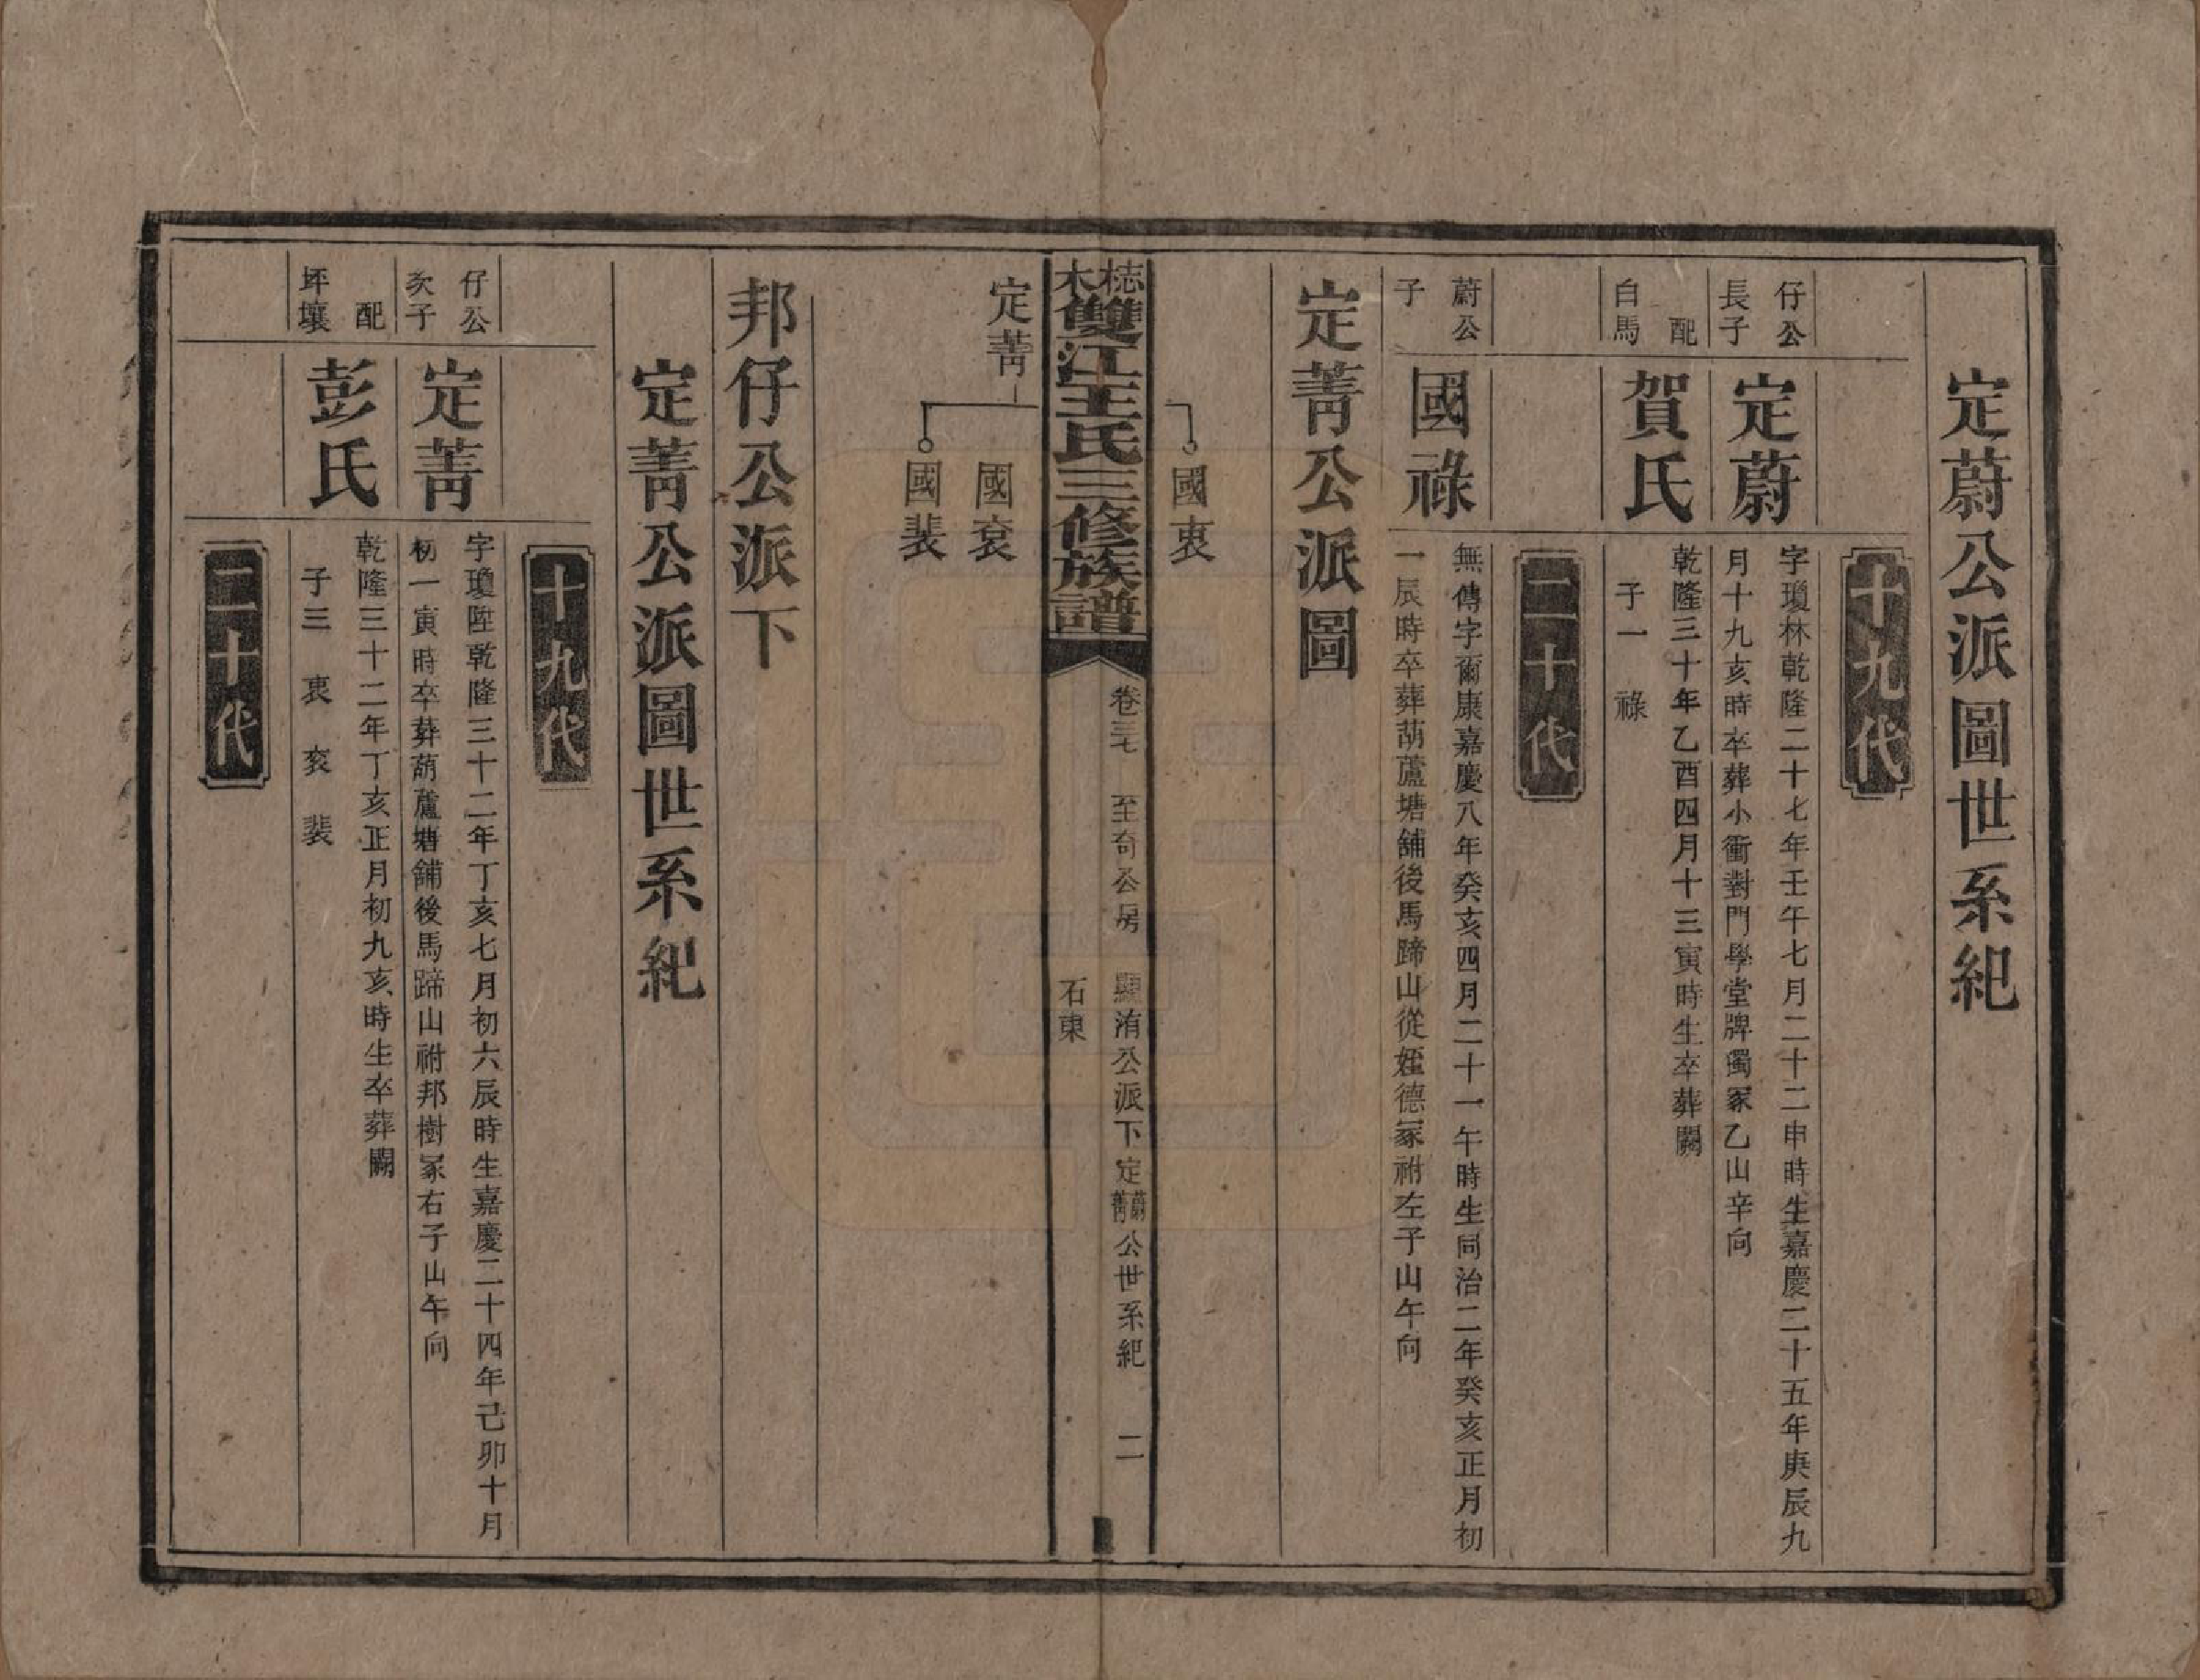 定蔚公派圖世系紀
十九代
仔公
長子
定蔚
字瓊林乾隆二十七年壬午七月二十二申時生嘉慶二十五年庚辰九
月十九亥時卒葬小衝對門學堂牌獨冢乙山辛向
配
白馬
賀氏
乾隆三十年乙酉四月十三寅時生卒葬闕
子一 祿
二十代
蔚公
子
國祿
無傳字爾康嘉慶八年癸亥四月二十一午時生同治二年癸亥正月初
一辰時卒葬葫蘆塘舖後馬蹄山從姪德冢祔左子山午向
定菁公派圖
國衷
梽木雙江王氏三修族譜
卷三七 至奇公房 顯洧公派下定蔚菁公世系紀 二
石東
定菁
國袞
國裴
邦仔公派下
定菁公派圖世系紀
十九代
仔公
次子
定菁
字瓊陞乾隆三十二年丁亥七月初六辰時生嘉慶二十四年己卯十月
初一寅時卒葬葫蘆塘舖後馬蹄山祔邦樹冢右子山午向
配
坪壤
彭氏
乾隆三十二年丁亥正月初九亥時生卒葬闕
子三 衷 袞 裴
二十代